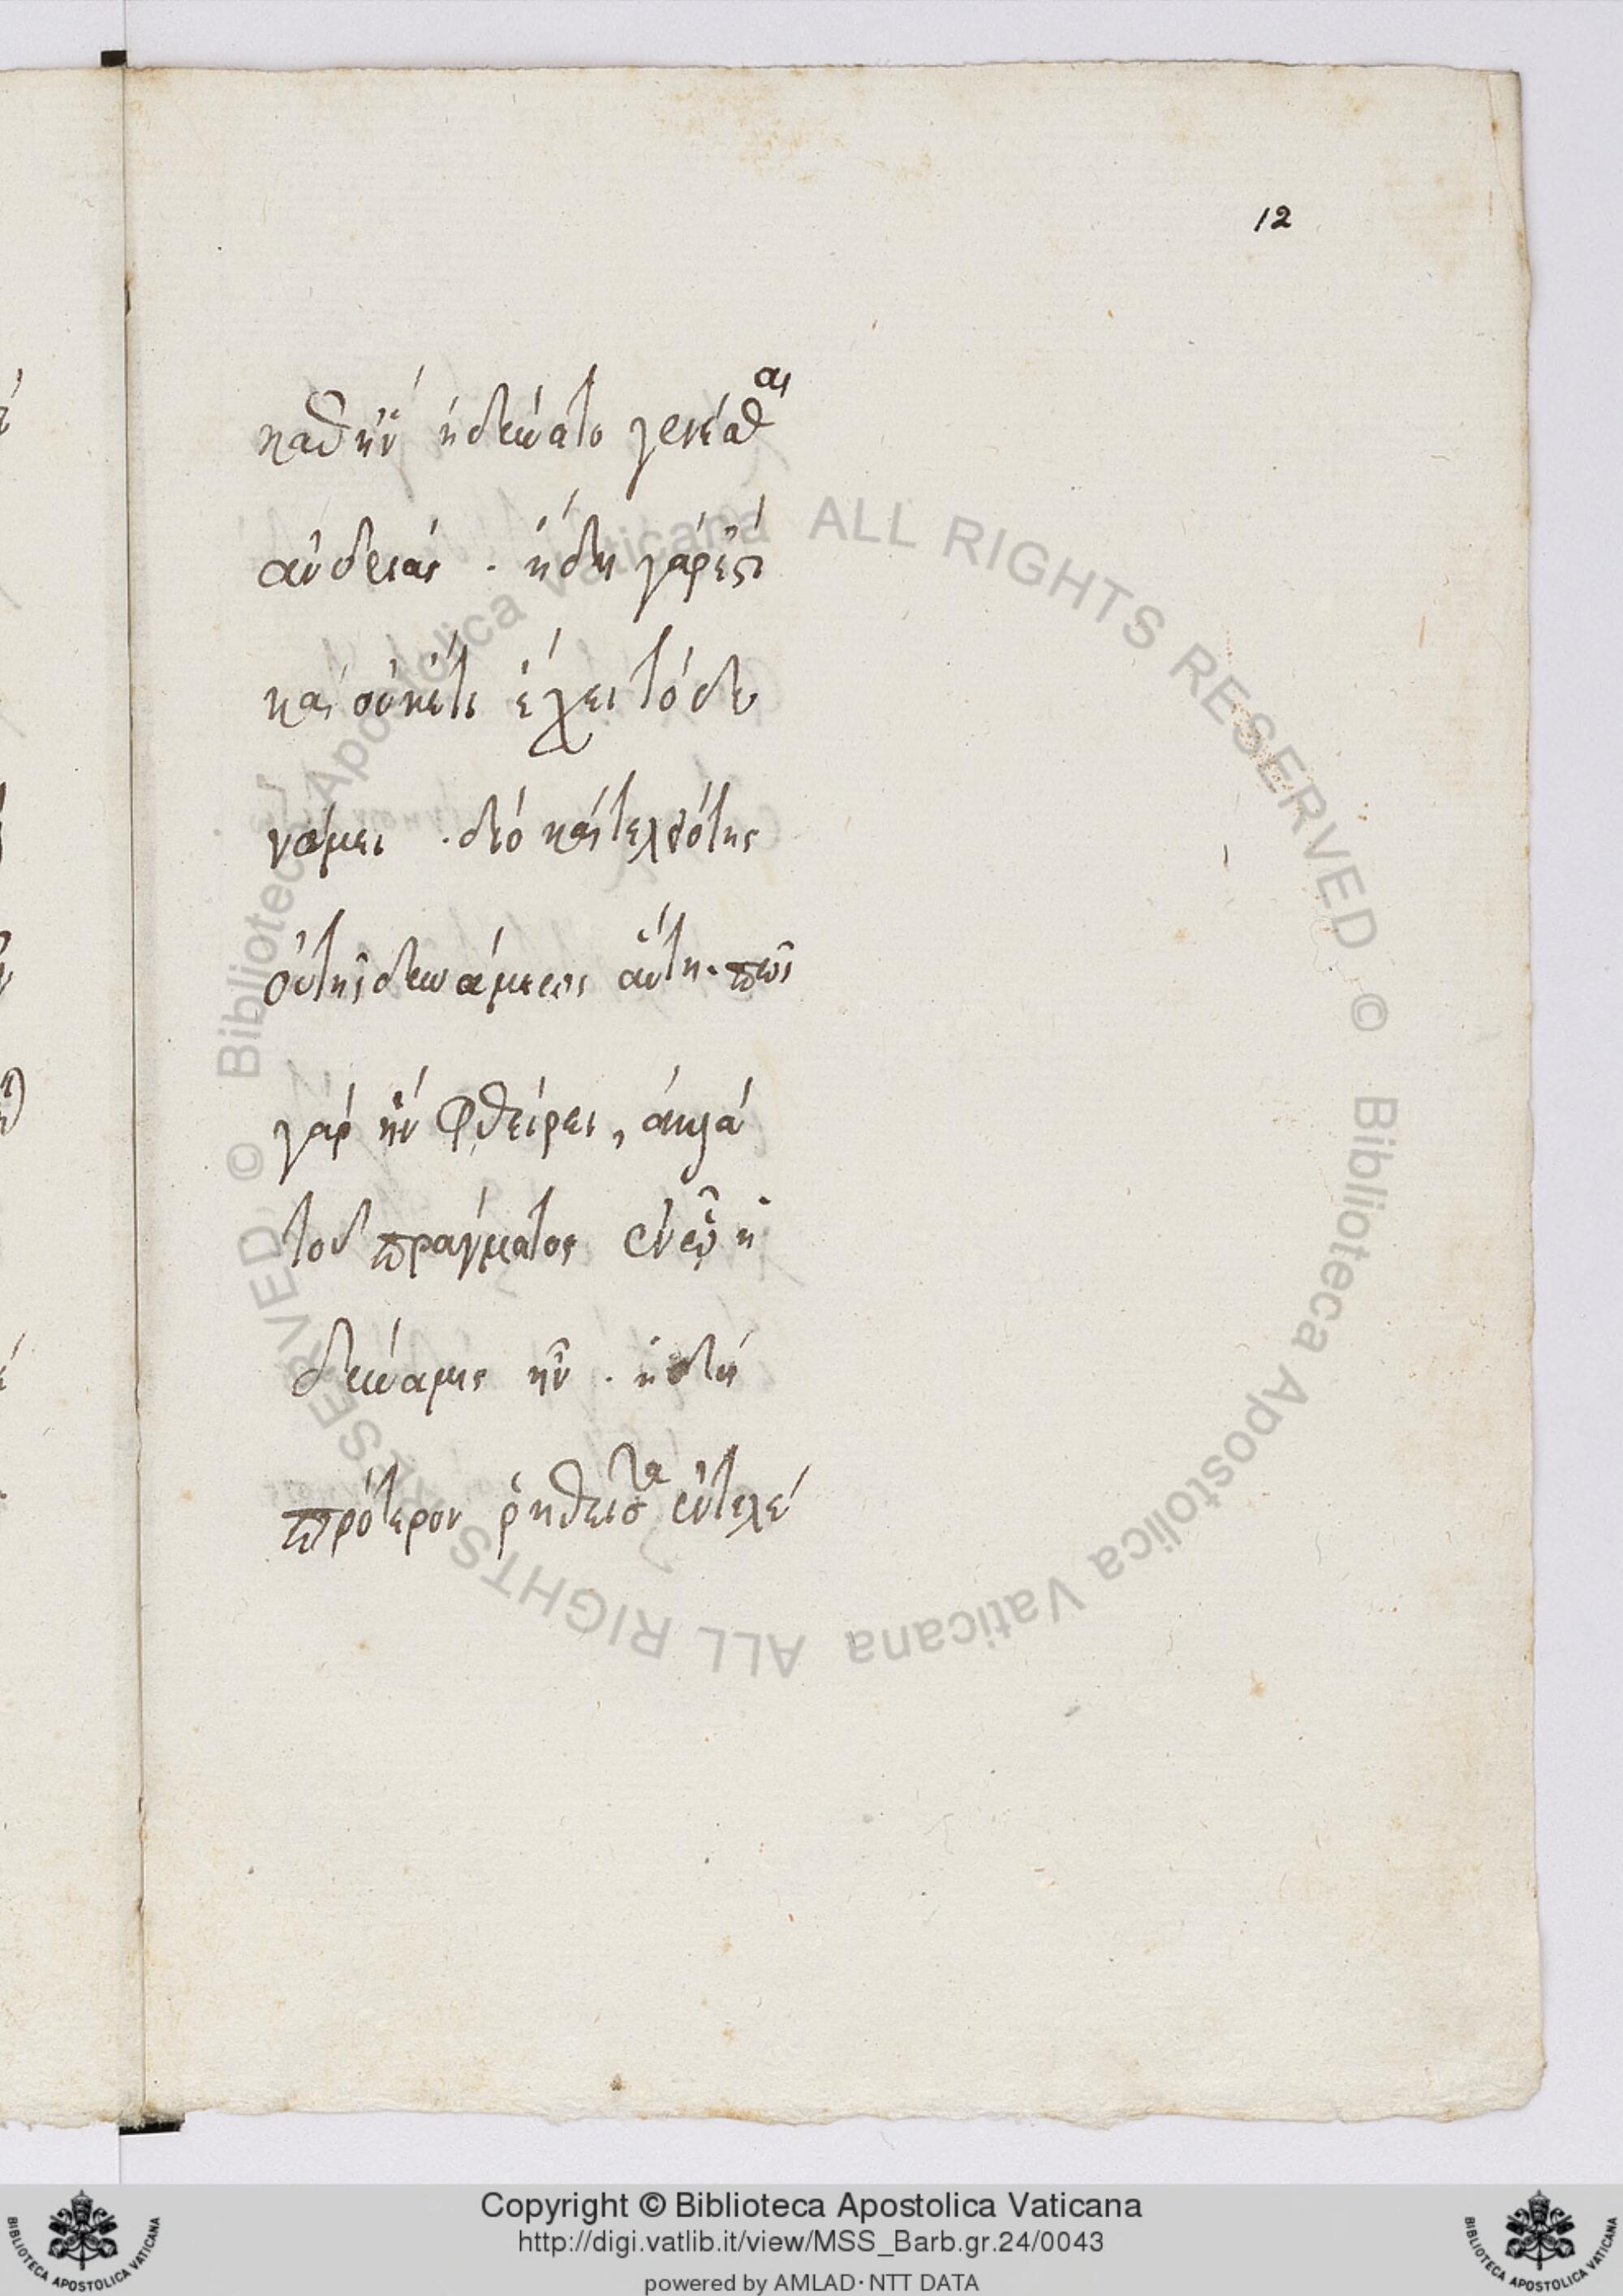 12
καθ ἣν ἠδύνατο γενέσθαι
ἀνδριάς . ἤδη γάρ ἐστι
καὶ οὐκέτι ἔχει τὸ δυ
νάμει . διὸ καὶ τελειότης
οὐ τῆς δυνάμεως αὕτη . πῶς
γὰρ ἣν φθείρει, ἀλλὰ
τοῦ πράγματος ἐν ᾧ ἡ
δύναμις ἦν . ἡ δὴ
πρότερον ῥηθεῖσα ἐντελέ
© Biblioteca Apostolica Vaticana ALL RIGHTS RESERVED © Biblioteca Apostolica Vaticana ALL RIGHTS RESERVED
Copyright © Biblioteca Apostolica Vaticana
http://digi.vatlib.it/view/MSS_Barb.gr.24/0043
powered by AMLAD·NTT DATA
BIBLIOTECA APOSTOLICA VATICANA
BIBLIOTECA APOSTOLICA VATICANA